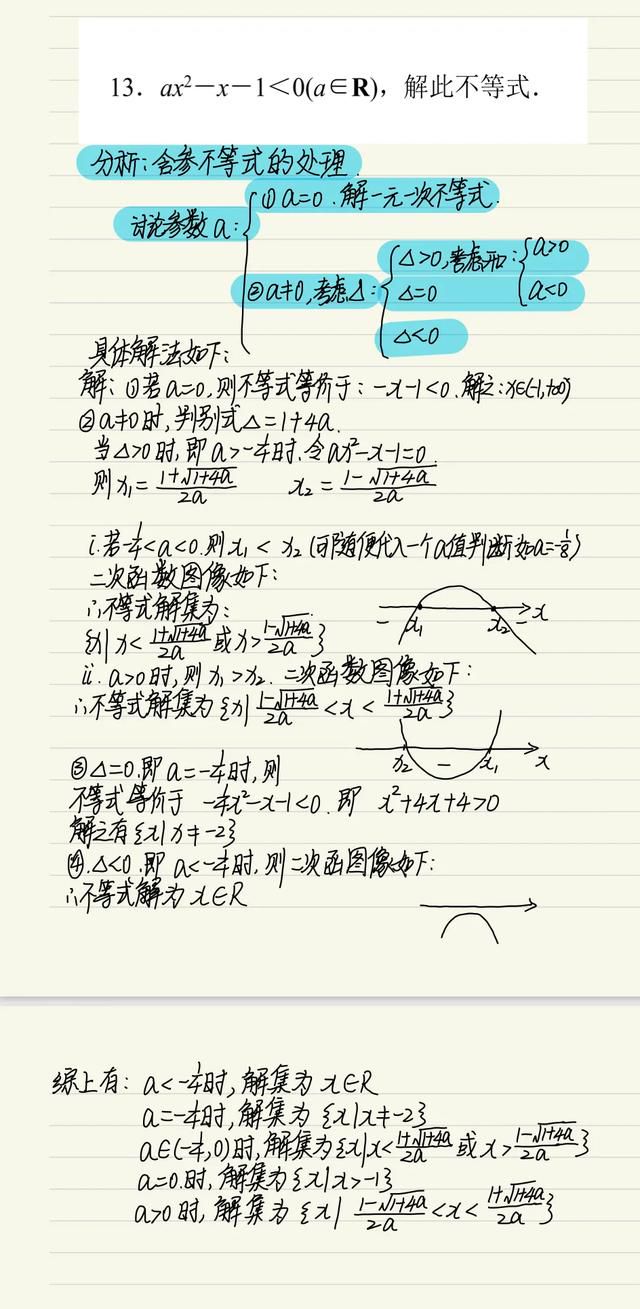 13. ax²－x－1＜0(a∈R)，解此不等式．
分析：含参不等式的处理
讨论参数a：
①a=0，解一元一次不等式．
②a≠0，考虑Δ：
Δ>0，考虑开口：
a>0
a<0
Δ=0
Δ<0
具体解法如下：
解：①若a=0，则不等式等价于：-x-1<0．解之：x∈(-1,+∞)
②a≠0时，判别式Δ=1+4a．
当Δ>0时，即a>-1/4时．令ax²-x-1=0．
则x₁=(1+√(1+4a))/(2a)  x₂=(1-√(1+4a))/(2a)
i．若-1/4<a<0．则x₁<x₂(可随便代入一个a值判断如a=-1/8)
二次函数图像如下：
- x₁ x₂ - x
∴不等式解集为：
{x|x<(1+√(1+4a))/(2a)或x>(1-√(1+4a))/(2a)}
ii．a>0时，则x₁>x₂．二次函数图像如下：
∴不等式解集为{x|(1-√(1+4a))/(2a)<x<(1+√(1+4a))/(2a)}
x₂ - x₁ x
③Δ=0．即a=-1/4时，则
不等式等价于 -1/4x²-x-1<0．即 x²+4x+4>0
解之有{x|x≠-2}
④．Δ<0．即a<-1/4时，则二次函图像如下：
∴不等式解为x∈R
综上有：a<-1/4时，解集为x∈R
a=-1/4时，解集为{x|x≠-2}
a∈(-1/4,0)时，解集为{x|x<(1+√(1+4a))/(2a)或x>(1-√(1+4a))/(2a)}
a=0．时，解集为{x|x>-1}
a>0时，解集为{x|(1-√(1+4a))/(2a)<x<(1+√(1+4a))/(2a)}